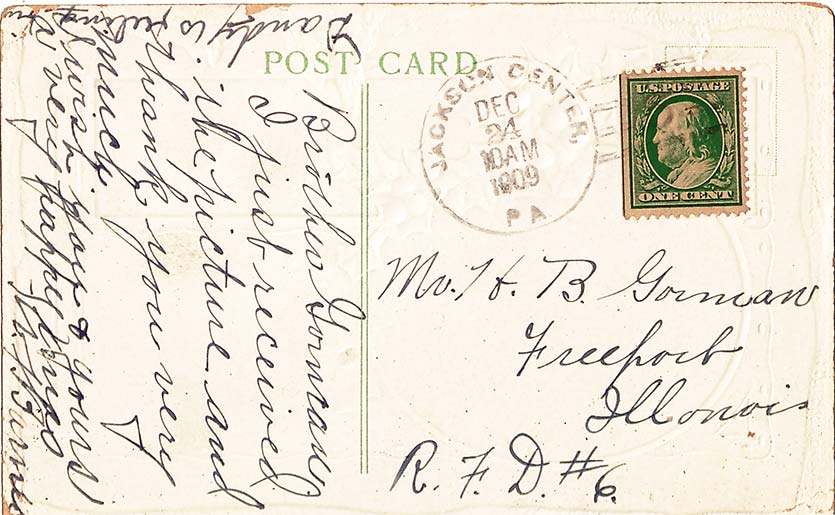 POST CARD
JACKSON CENTER,
DEC
24
10AM
1909
PA
U.S. POSTAGE
ONE CENT
Mr. H. B. Gorman
Freeport
Illonois
R. F. D. # 6.
Brother Gorman
I just received
the picture and
thank you very
much
I wish you & yours
a very happy
Dandy is